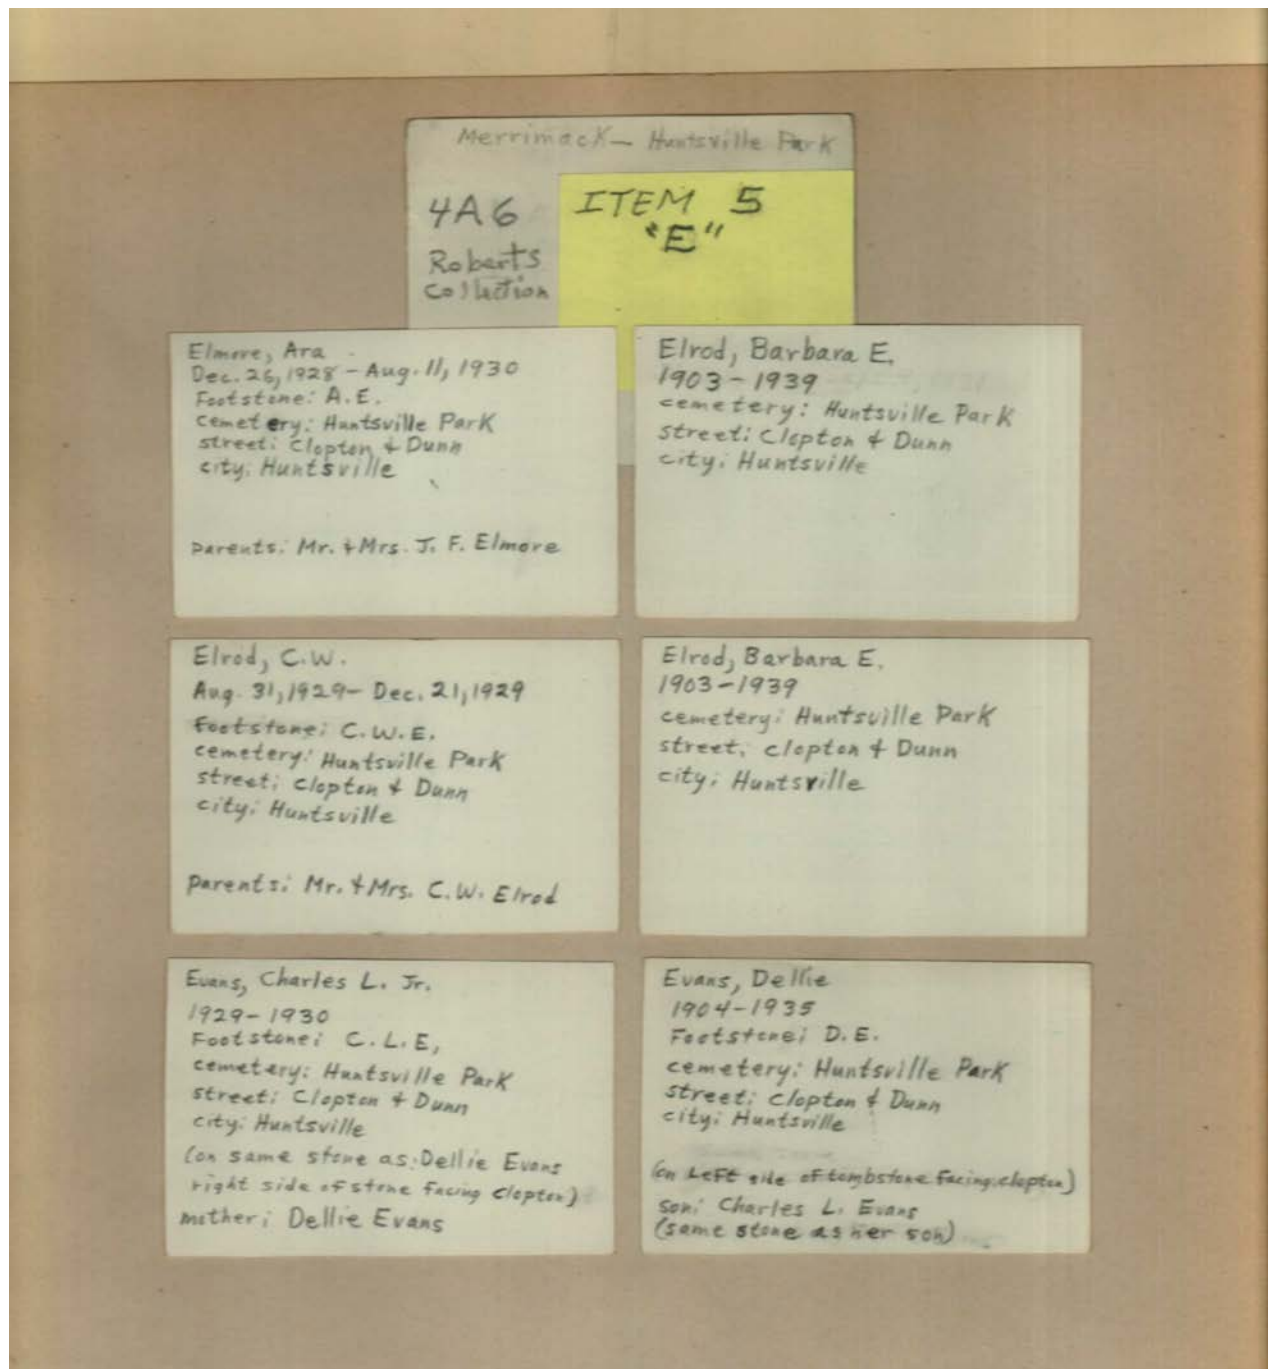 Merrimack - Huntsville Park
4A6
Roberts
Collection
ITEM 5
"E"
Elmore, Ara
Dec. 26, 1928 - Aug. 11, 1930
Footstone: A.E.
cemetery: Huntsville Park
street: Clopton & Dunn
city: Huntsville
parents: Mr. & Mrs. J. F. Elmore
Elrod, Barbara E.
1903-1939
cemetery: Huntsville Park
street: Clopton & Dunn
city: Huntsville
Elrod, C.W.
Aug. 31, 1929- Dec. 21, 1929
Footstone: C.W.E.
cemetery: Huntsville Park
street: Clopton & Dunn
city: Huntsville
parents: Mr. & Mrs. C.W. Elrod
Elrod, Barbara E.
1903-1939
cemetery: Huntsville Park
street: Clopton & Dunn
city: Huntsville
Evans, Charles L. Jr.
1929-1930
Footstone: C.L.E.
cemetery: Huntsville Park
street: Clopton & Dunn
city: Huntsville
(on same stone as: Dellie Evans
right side of stone facing Clopton)
mother: Dellie Evans
Evans, Dellie
1904-1935
Footstone: D.E.
cemetery: Huntsville Park
street: Clopton & Dunn
city: Huntsville
(on Left side of tombstone facing: clopton)
son: Charles L. Evans
(same stone as her son)